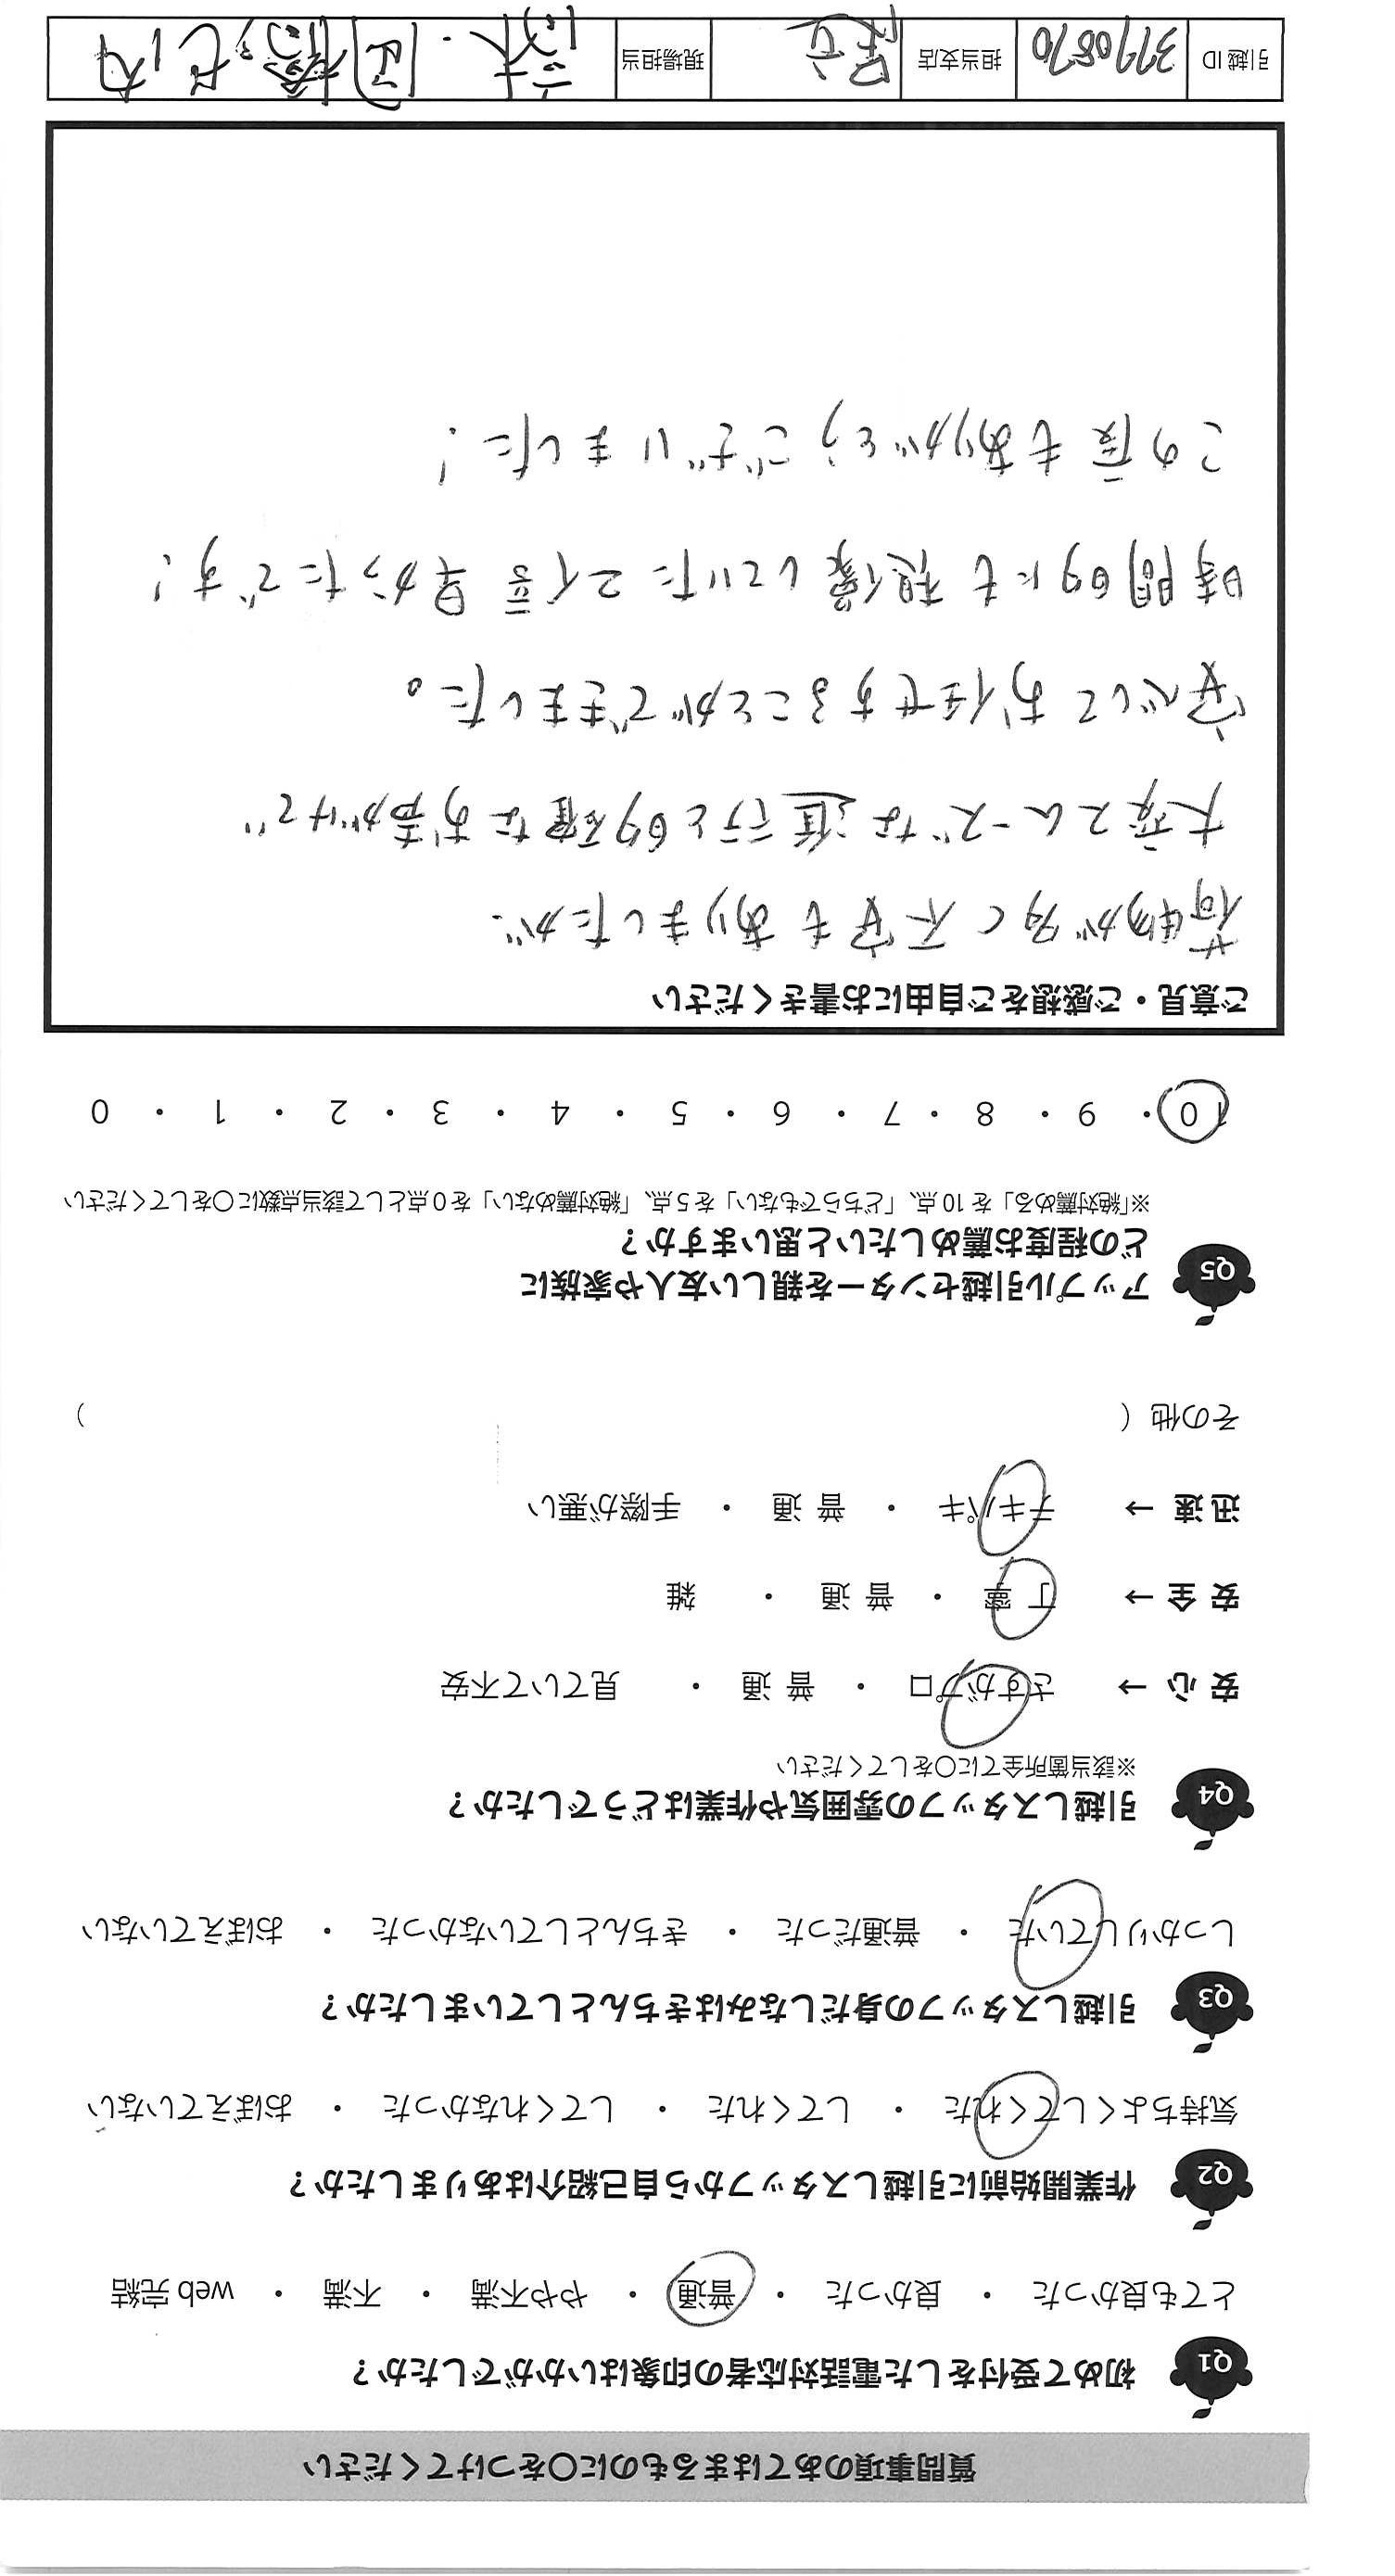 質問事項のあてはまるものに○をつけてください
Q1 初めて受付をした電話対応者の印象はいかがでしたか？
とても良かった ・ 良かった ・ 普通 ・ やや不満 ・ 不満 ・ web 完結
Q2 作業開始前に引越しスタッフから自己紹介はありましたか？
気持ちよくしてくれた ・ してくれた ・ してくれなかった ・ おぼえていない
Q3 引越しスタッフの身だしなみはきちんとしていましたか？
しっかりしていた ・ 普通だった ・ きちんとしていなかった ・ おぼえていない
Q4 引越しスタッフの雰囲気や作業はどうでしたか？
※該当箇所全てに○をしてください
安心 → さすがプロ ・ 普通 ・ 見ていて不安
安全 → 丁寧 ・ 普通 ・ 雑
迅速 → テキパキ ・ 普通 ・ 手際が悪い
その他（ ）
Q5 アップル引越センターを親しい友人や家族に
どの程度お薦めしたいと思いますか？
※「絶対薦める」を 10 点、「どちらでもない」を 5 点、「絶対薦めない」を 0 点として該当点数に○をしてください
10 ・ 9 ・ 8 ・ 7 ・ 6 ・ 5 ・ 4 ・ 3 ・ 2 ・ 1 ・ 0
ご意見・ご感想をご自由にお書きください
荷物が多く不安もありましたが、
大変スムーズな進行と的確なお声がけで
安心してお任せすることができました。
時間的にも想像していた2倍早かったです！
この度もありがとうございました！
引越 ID 3790870 担当支店 足立 現場担当